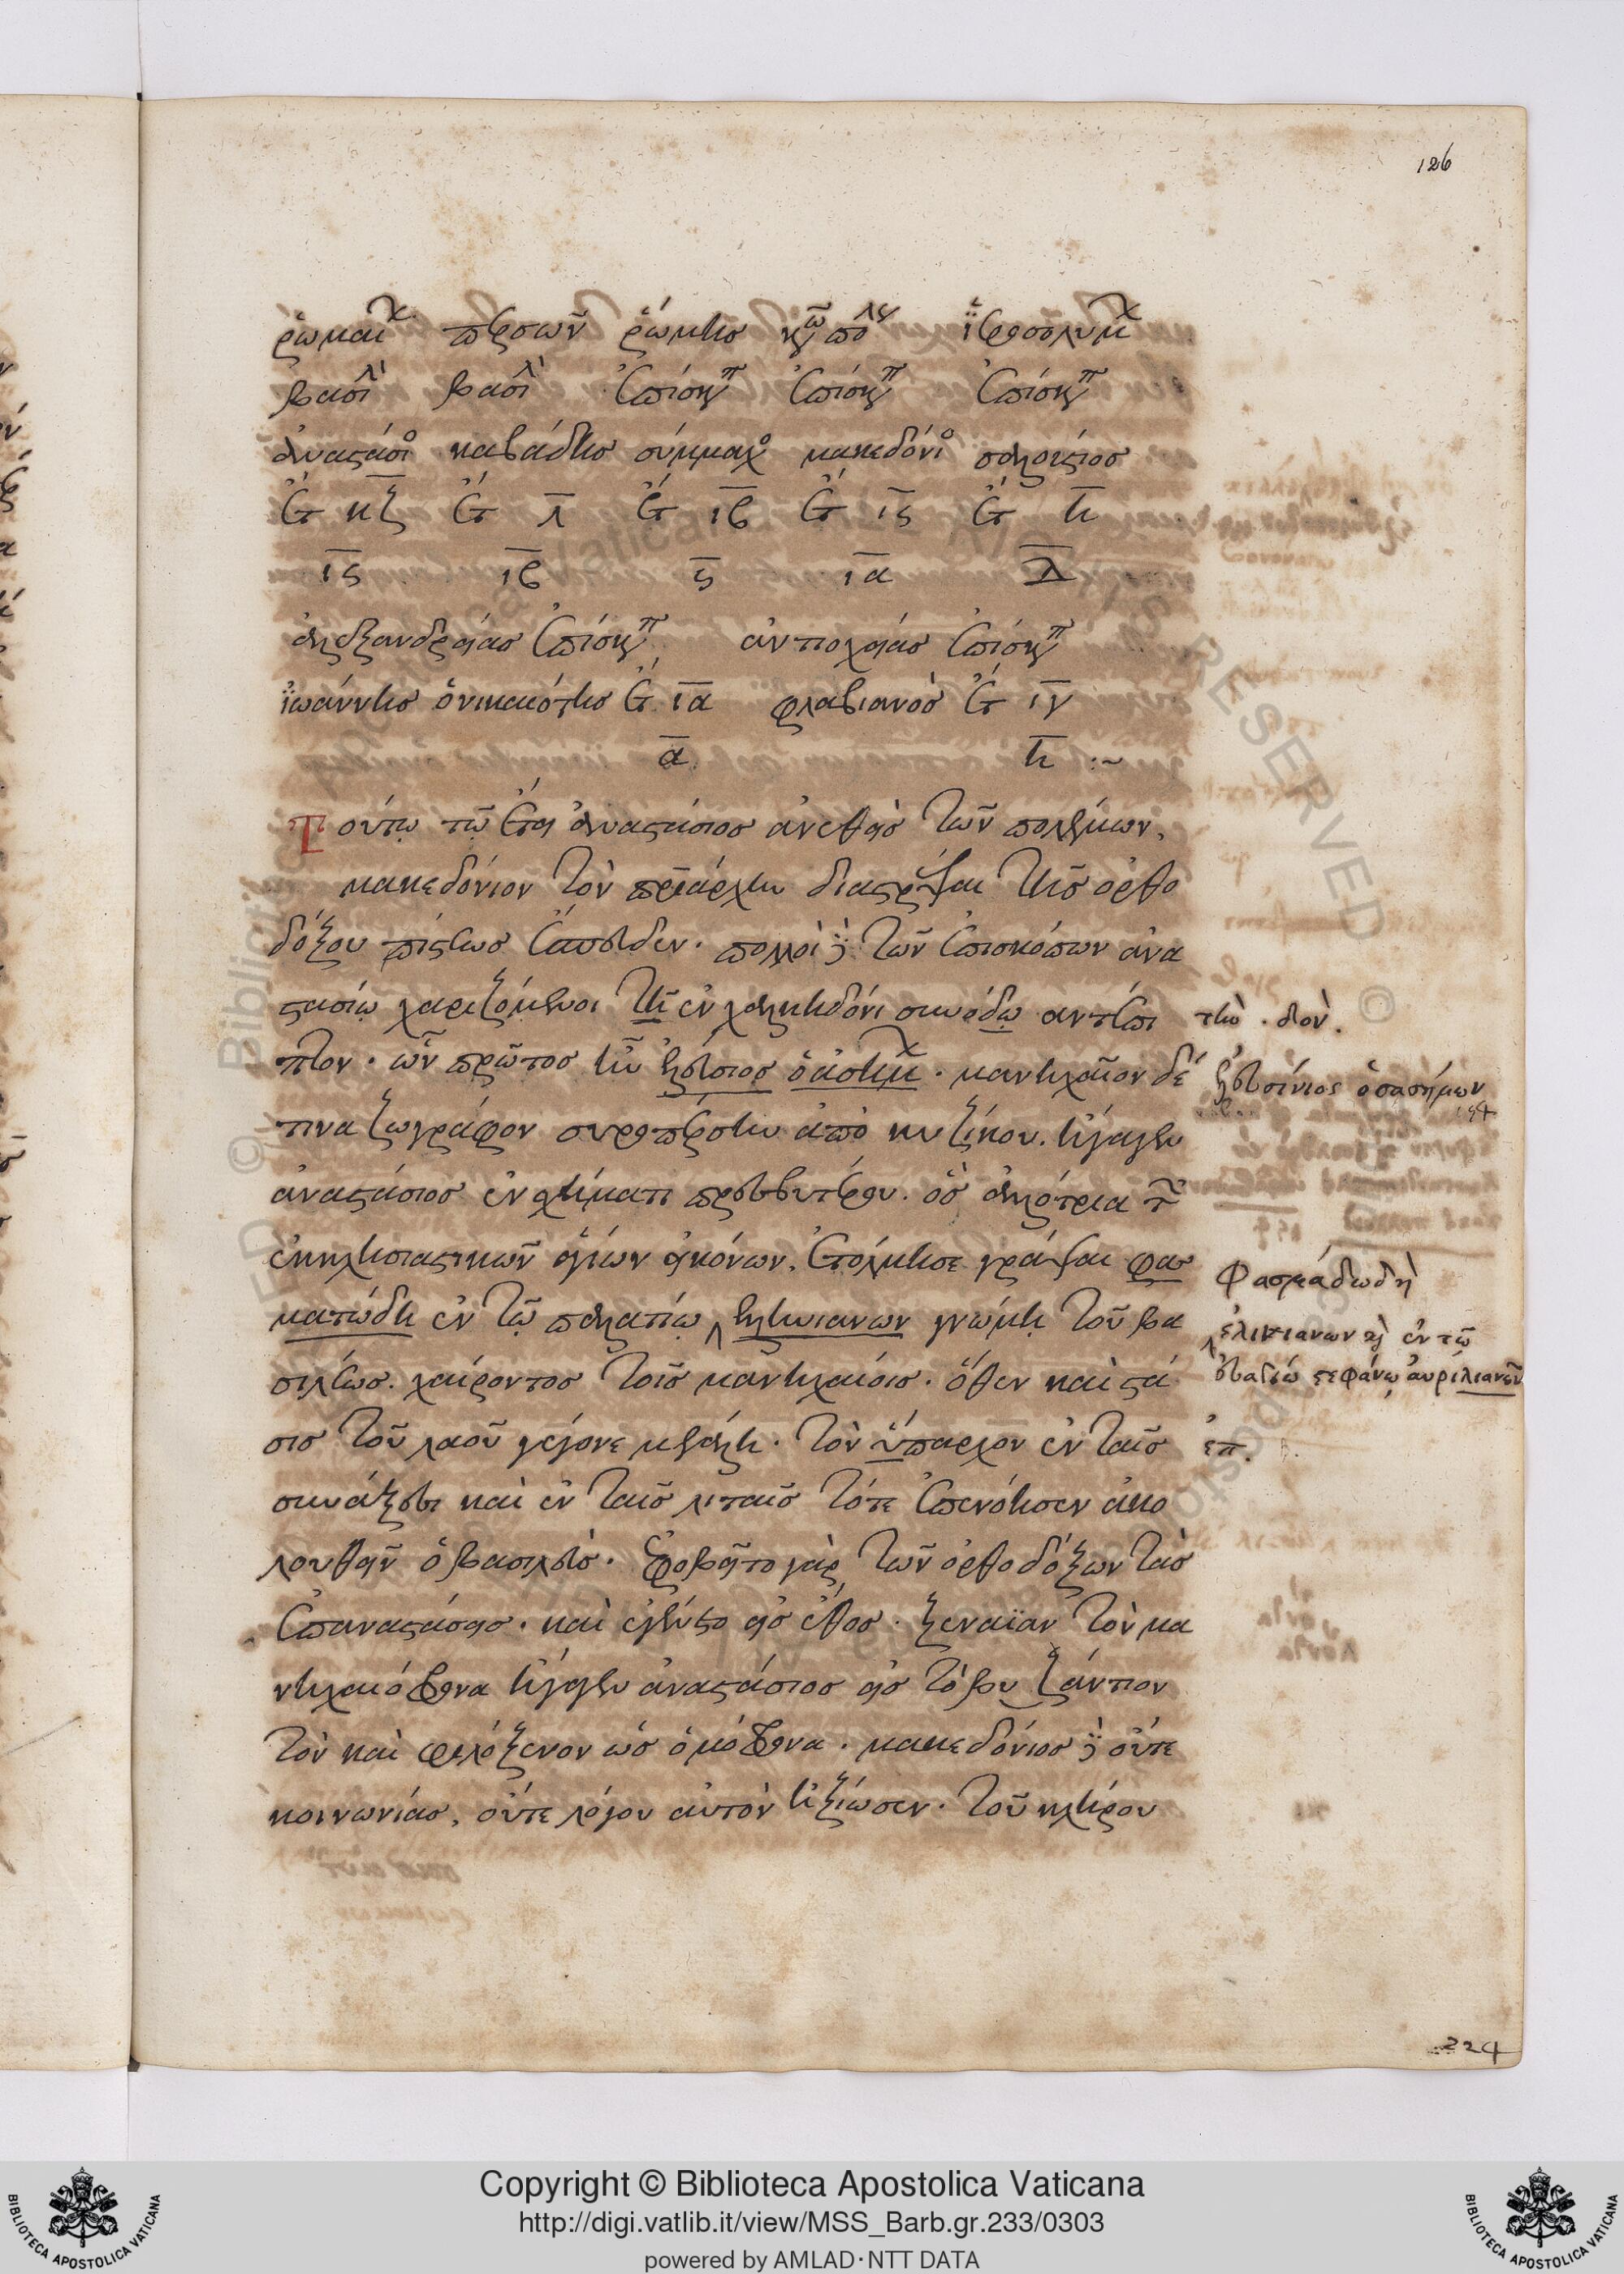 126
ῥωμαϊκ περσῶν ῥώμησ κωπολ ϊεροσολυμ
βασιλ βασιλ ἐπίσκοπ ἐπίσκοπ ἐπίσκοπ
ἀναστάσιο καβάδησ σύμμαχο μακεδόνιο σαλούστιοσ
ἔτ κζ ἔτ λ ἔτ ιβ ἔτ ις ἔτ η
ις ιβ ς ια λ
ἀλεξανδρείασ ἐπίσκοπ ἀντιοχείασ ἐπίσκοπ
ϊωάννησ ὁνικαιότησ ἔτ ια φλαβιανὸσ ἔτ ιγ
α η :~
Τούτω τῶ ἔτει ἀναστάσιοσ ἀνεθεὶσ τῶν πολέμων,
μακεδόνιον τὸν πριάρχην διαστρέψαι τῆσ ὀρθο
δόξου πίστεωσ ἔσπευδεν. πολλοὶ δὲ τῶν ἐπισκόπων ἀνα
στασίω χαριζόμενοι τῆ ἐν χαλκηδόνι συνόδω αντέπι
πτον. ὧν πρῶτοσ ἦν ἐλεύσιοσ ὁ ἀσημ. μανηχαῖον δέ
τινα ζωγράφον συροπέρσην ἀπὸ κυζίκου. ἤγαγεν
ἀναστάσιοσ ἐν σχήματι πρεσβυτέρου. ὃσ ἀλλότρια τ
ἐκκλησιαστικῶν ἁγίων εἰκόνων, ἐτόλμησε γράψαι φασ
ματώδη ἐν τῶ παλατίω ἑλληνιανων γνώμη τοῦ βα
σιλέωσ. χαίροντοσ τοῖσ μανηχαίοισ. ὅθεν καὶ στά
σισ τοῦ λαοῦ γέγονε μεγάλη. τὸν ὕπαρχον ἐν ταῖσ
συνάξεσι καὶ ἐν ταῖσ λιταῖσ τότε ἐπενόησεν ἀκο
λουθεῖν ὁ βασιλεὺσ. ἐφοβεῖτο γὰρ τῶν ὀρθοδόξων τὰσ
ἐπαναστάσεισ. καὶ ἐγένετο εἰσ ἔθοσ. ξεναϊαν τὸν μα
νηχαιόφρονα ἤγαγεν ἀναστάσιοσ εἰσ τὸ βυζάντιον
τὸν καὶ φιλόξενον ὡσ ὁμόφρονα. μακεδόνιοσ δὲ οὔτε
κοινωνίασ, οὔτε λόγου αὐτὸν ἠξίωσεν. τοῦ κλήρου
τὴν . δον.
ἐλευσίνιος ὁ σασήμων
Φασμάδωδη
ἑλινιανων καὶ ἐν τῶ
στεφάνω αὐριλιανῶν
ἐπ.
224
Copyright © Biblioteca Apostolica Vaticana
http://digi.vatlib.it/view/MSS_Barb.gr.233/0303
powered by AMLAD·NTT DATA
BIBLIOTECA APOSTOLICA VATICANA
BIBLIOTECA APOSTOLICA VATICANA